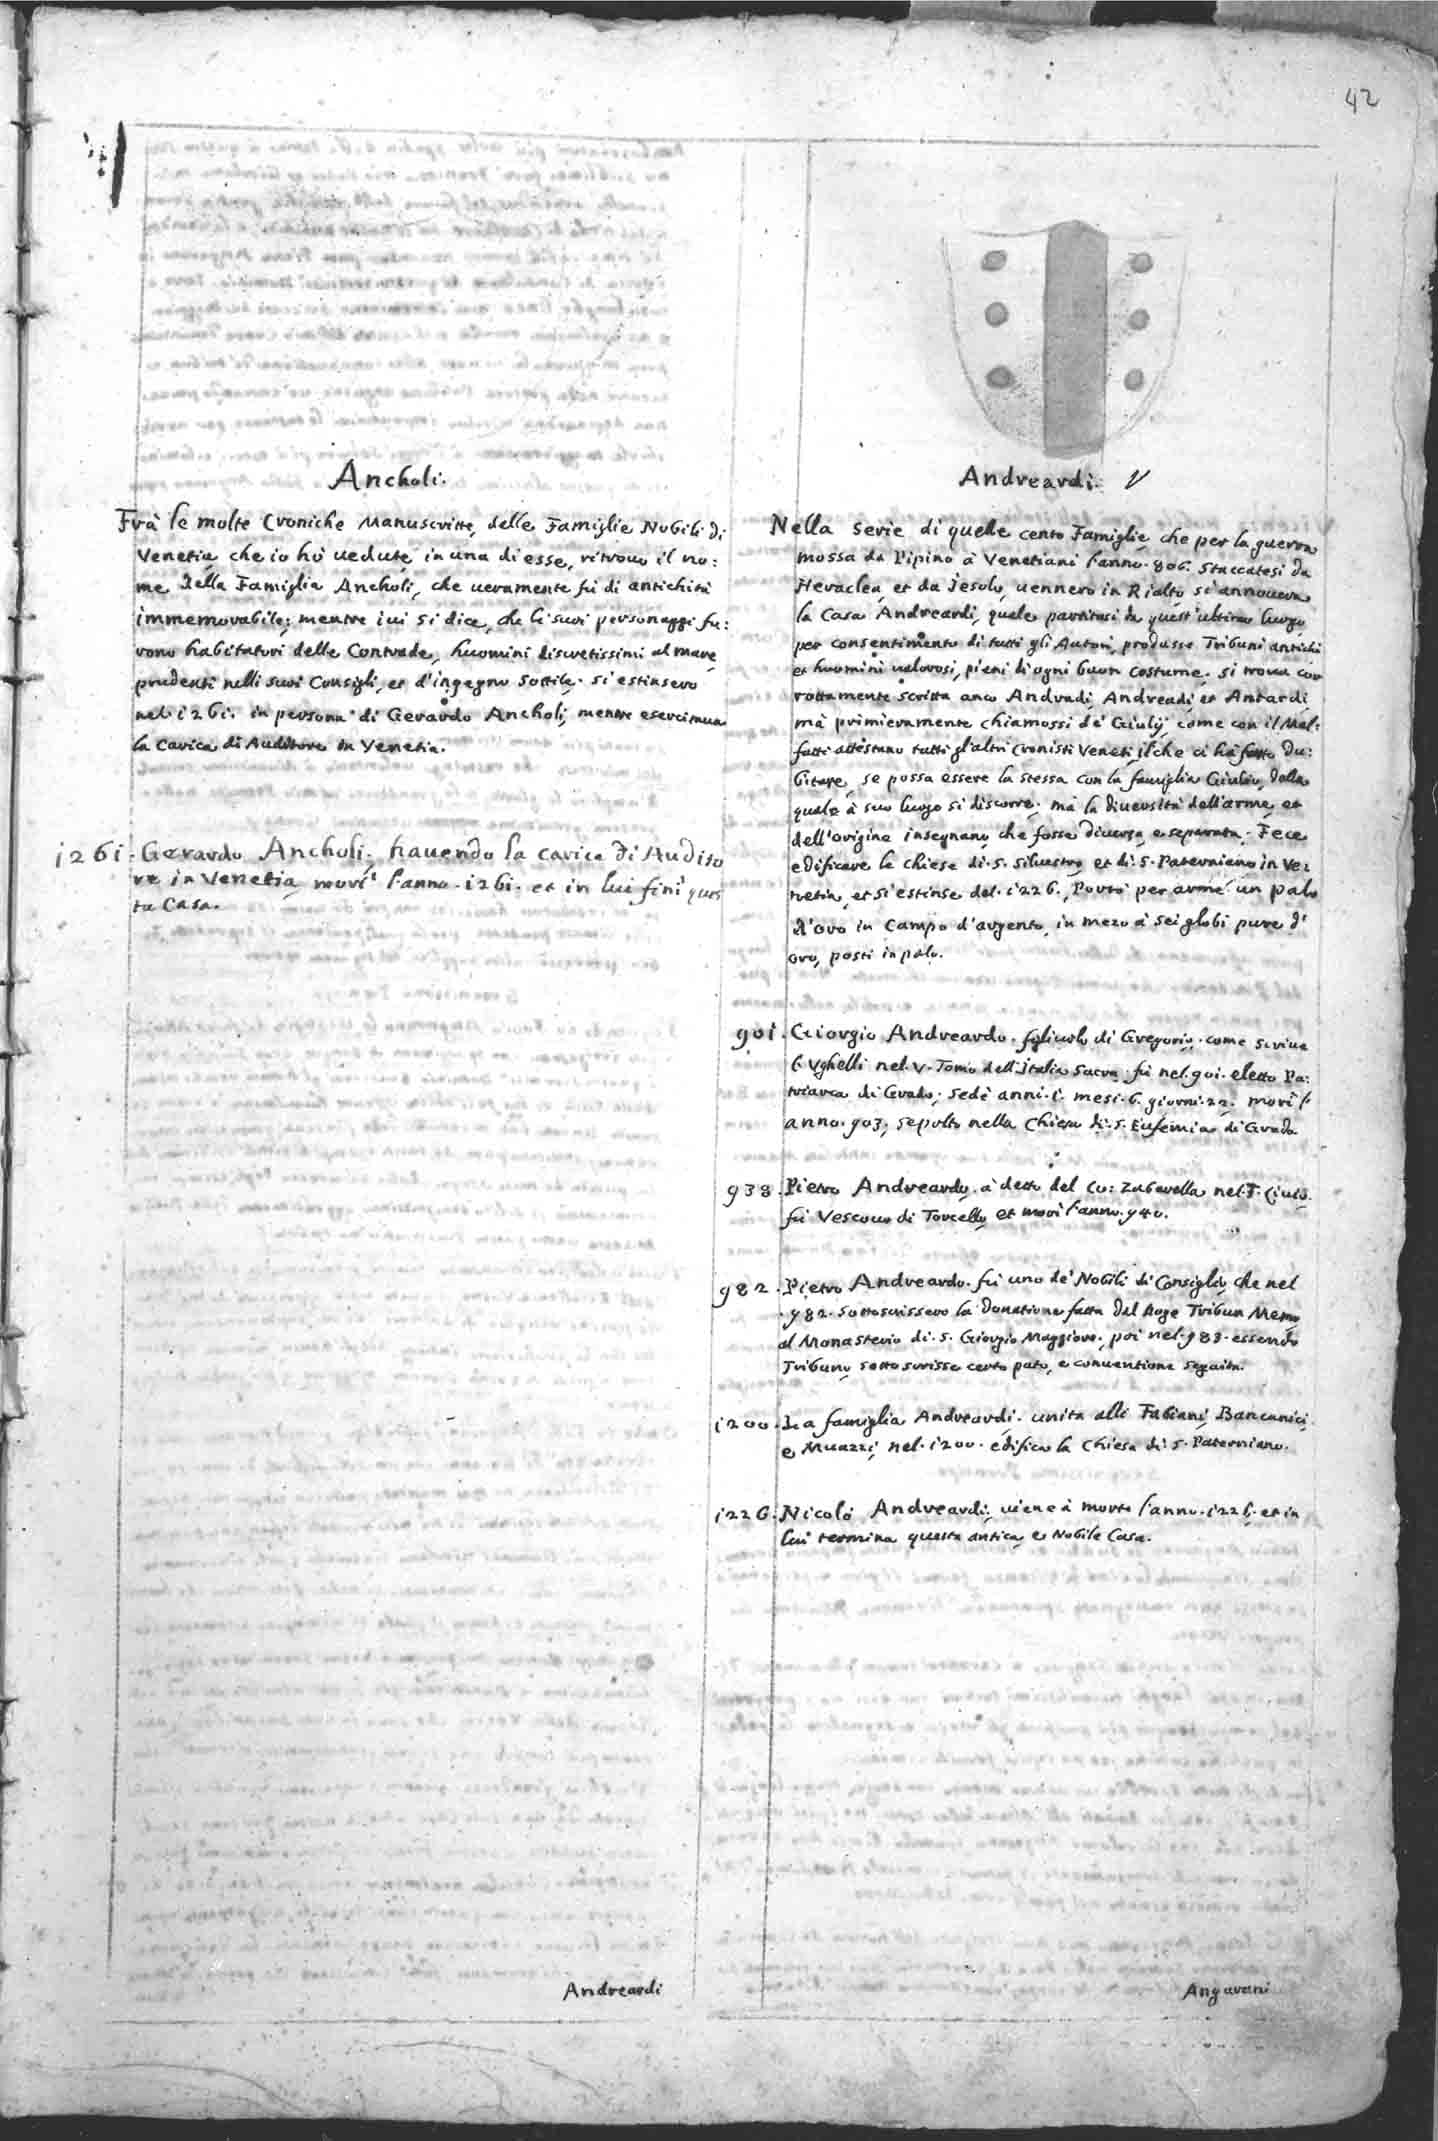 42
Ancholi.
Frà le molte Croniche Manuscritte, delle Famiglie Nobili di
Venetia, che io hò uedute, in una di esse, ritrouo il no:
me della Famiglia Ancholi, che ueramente fù di antichità
immemorabile; mentre iui si dice, che li suoi personaggi fu:
rono habitatori delle Contrade, huomini discretissimi al mare,
prudenti nelli suoi Consigli, et d'ingegno sottile. si estinsero
nel. i26i. in persona di Gerardo Ancholi, mentre esercitaua
la carica di Auditore in Venetia.
i26i. Gerardo Ancholi. hauendo la carica di Audito
re in Venetia, morì l'anno. i26i. et in lui finì ques
ta Casa.
Andreardi
Andreardi.
Nella serie di quelle cento Famiglie, che per la guerra
mossa da Pipino à Venetiani l'anno. 806. staccatesi da
Heraclea, et da Jesolo, uennero in Rialto, si annouera
la Casa Andreardi, quale partitasi da quest'ultimo luogo,
per consentimento di tutti gli Autori, produsse Tribuni antichi
et huomini ualorosi, pieni di ogni buon costume. si troua cor
rottamente scritta anco Andradi, Andreadi et Antardi,
mà primieramente chiamossi de' Giulij, come con il Mal:
fatti attestano tutti gl'altri Cronisti Veneti, ilche ci hà fatto du:
bitare, se possa essere la stessa con la famiglia Giulia, della
quale à suo luogo si discorre. mà la diuersità dell'arme, et
dell'origine insegnano, che fosse diuersa, e separata. Fece
edificare le chiese di. S. Siluestro, et di. S. Paterniano in Ve:
netia, et si estinse del. i226., Portò per arme un palo
d'oro in Campo d'argento, in mezo à sei globi pure d'
oro, posti in palo.
90i. Giorgio Andreardo. figliuolo di Gregorio, come scriue
l'Vghelli nel. V. Tomo dell'Italia Sacra. fù nel. 90i. eletto Pa:
triarca di Grado; sedè anni. i. mesi. 6. giorni. 22. morì l'
anno. 903; sepolto nella Chiesa di. S. Eufemia di Grado.
938. Pietro Andreardo, à detto del Co: Zabarella nel. F.
fù Vescouo di Torcello, et morì l'anno. 940.
982. Pietro Andreardo. fù uno de' Nobili di Consiglio, che nel
. 982. sottoscrissero la donatione fatta dal Doge Tribun Memo,
al Monasterio di. S. Giorgio Maggiore. poi nel. 983. essendo
Tribuno, sottoscrisse certo pato, e conuentione seguita.
i200. La famiglia Andreardi. unita alli Fabiani, Bancanici,
e Muazzi, nel. i200. edificò la Chiesa di. S. Paterniano.
i226. Nicolò Andreardi; uiene à morte l'anno. i226. et in
lui termina questa antica, e Nobile Casa.
Angarani